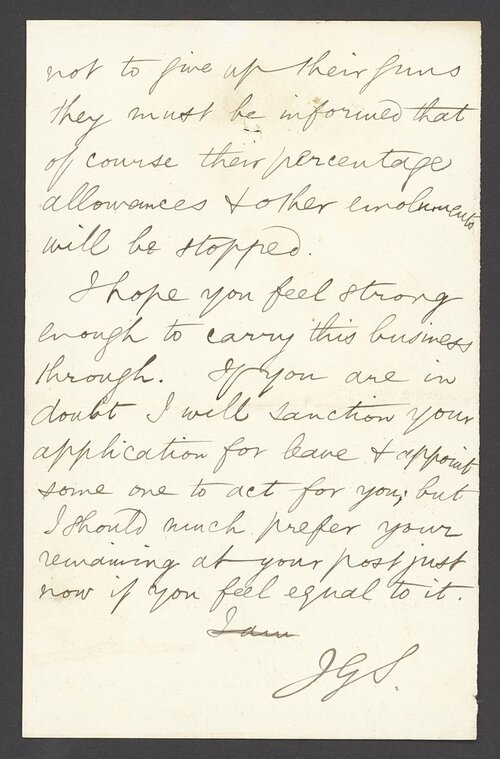 not to give up their guns
they must be informed that
of course their percentage
allowances & other emoluments
will be stopped.
I hope you feel strong
enough to carry this business
through. If you are in
doubt I will sanction your
application for leave & appoint
some one to act for you; but
I should much prefer your
remaining at your post just
now if you feel equal to it.
I am
JGS.